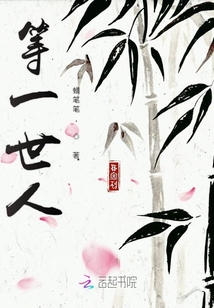 等一世人
蜻笔笔
著
云起书院